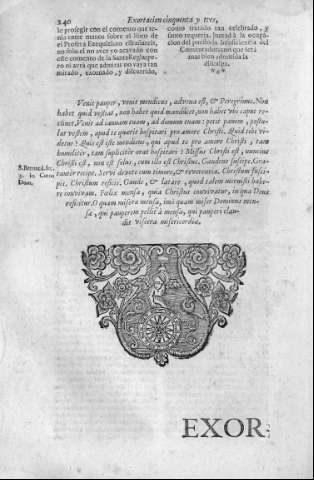 240
Exortacion cinquenta y tres,
le prosegir con el comento que te-
nia entre manos sobre el libro de
el Profeta Ezequiel: no estrañareis,
no solo el no ver yo acavado con
este comento de la Santa Regla; pe-
ro ni aver que admirar no vaya tan
mirado, exornado, y discurrido,
como tratado tan celebrado, y
santo requeria, bastará la ocupa-
cion del por
Comentador: con que será
mas bien admitida la
disculpa.
Venit pauper, venit mendicus, advena est, & Peregrinus, Non
habet quid vestiat, non habet quid manducet, non habet vbi caput re-
clinet, Venit ad ianuam tuam, ad domum tuam: petit panem, postu-
lat vestem, apud te quærit hospitari pro amore Christi. Quid tibi vi-
detur? Quis est iste mendicus, qui apud te pro amore Christi, tam
humiliter, tam supliciter orat hospitari? Missus Christi est, nuncius
Christi est, non est solus, cum illo est Christus. Gaudens suscipe. Gra-
tanter recipe. Servi devote cum timore, & reverentia. Christum susci-
pis, Christum reficis. Gaude, & lætare, quod talem meruisti habe-
re convivam. Felix mensa, qua Christus convivatur, in qua Deus
reficitur. O quam misera mensa, imò quam miser Dominus men-
sæ, qui pauperem pellit à mensa, qui pauperi clau-
dit viscera misericordiæ.
S. Bernard. ser.
in Cœna
Dom.
EXOR-